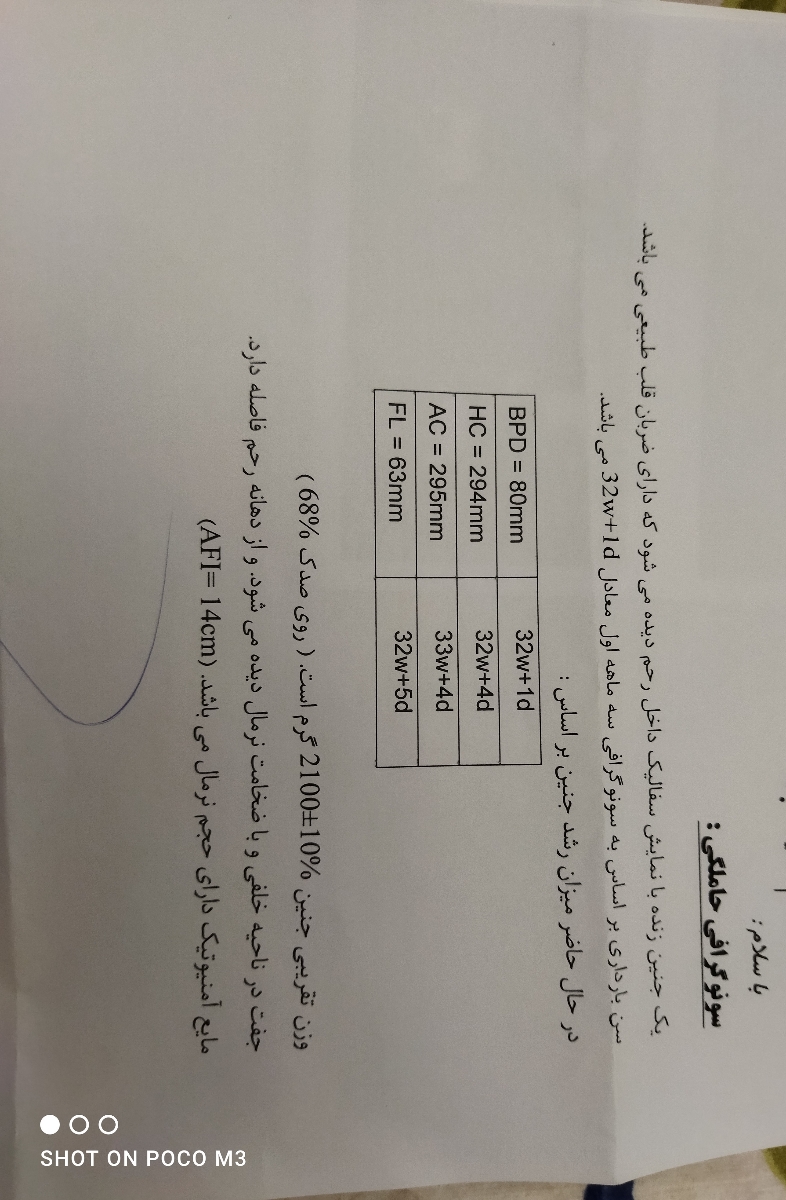 با سلام:
سونوگرافی حاملگی :
یک جنین زنده با نمایش سفالیک داخل رحم دیده می شود که دارای ضربان قلب طبیعی می باشد.
سن بارداری بر اساس به سونوگرافی سه ماهه اول معادل 32w+1d می باشد.
در حال حاضر میزان رشد جنین بر اساس :
BPD = 80mm 32w+1d
HC = 294mm 32w+4d
AC = 295mm 33w+4d
FL = 63mm 32w+5d
وزن تقریبی جنین 2100±10% گرم است. ( روی صدک 68% )
جفت در ناحیه خلفی و با ضخامت نرمال دیده می شود. و از دهانه رحم فاصله دارد.
مایع آمنیوتیک دارای حجم نرمال می باشد. (AFI= 14cm)
SHOT ON POCO M3